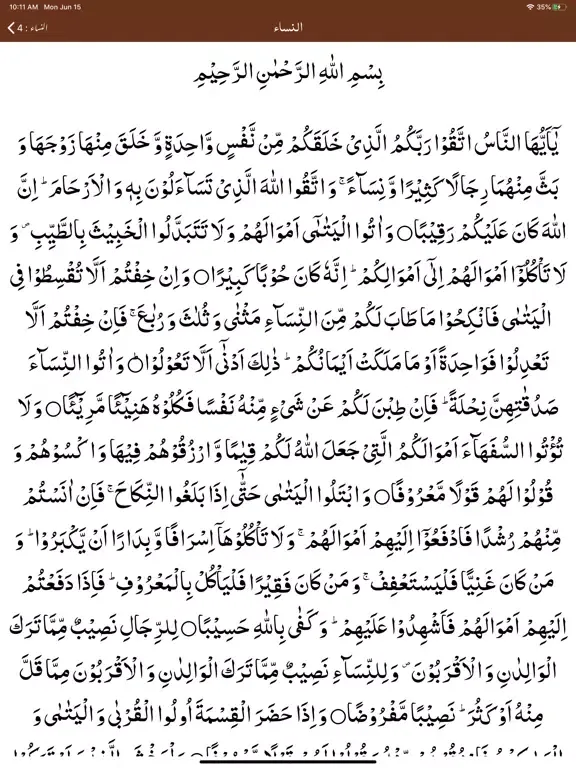 10:11 AM Mon Jun 15
35%
النساء : 4
النساء
بِسْمِ اللّٰهِ الرَّحْمٰنِ الرَّحِيْمِ
يٰۤاَيُّهَا النَّاسُ اتَّقُوْا رَبَّكُمُ الَّذِىْ خَلَقَكُمْ مِّنْ نَّفْسٍ وَّاحِدَةٍ وَّ خَلَقَ مِنْهَا زَوْجَهَا وَ
بَثَّ مِنْهُمَا رِجَالًا كَثِيْرًا وَّ نِسَآءً‌ ۚ وَ اتَّقُوا اللّٰهَ الَّذِىْ تَسَآءَلُوْنَ بِهٖ وَ الْاَرْحَامَ‌ ؕ اِنَّ
اللّٰهَ كَانَ عَلَيْكُمْ رَقِيْبًا○ وَ اٰتُوا الْيَتٰمٰٓى اَمْوَالَهُمْ‌ وَلَا تَتَبَدَّلُوا الْخَبِيْثَ بِالطَّيِّبِ‌ ۖ وَ
لَا تَاْكُلُوْۤا اَمْوَالَهُمْ اِلٰٓى اَمْوَالِكُمْ‌ ؕ اِنَّهٗ كَانَ حُوْبًا كَبِيْرًا○ وَ اِنْ خِفْتُمْ اَلَّا تُقْسِطُوْا فِى
الْيَتٰمٰى فَانْكِحُوْا مَا طَابَ لَكُمْ مِّنَ النِّسَآءِ مَثْنٰى وَ ثُلٰثَ وَ رُبٰعَ‌ ۚ فَاِنْ خِفْتُمْ اَلَّا
تَعْدِلُوْا فَوَاحِدَةً اَوْ مَا مَلَكَتْ اَيْمَانُكُمْ‌ ؕ ذٰلِكَ اَدْنٰٓى اَلَّا تَعُوْلُوْا○ وَ اٰتُوا النِّسَآءَ
صَدُقٰتِهِنَّ نِحْلَةً‌ ؕ فَاِنْ طِبْنَ لَكُمْ عَنْ شَىْءٍ مِّنْهُ نَفْسًا فَكُلُوْهُ هَنِيْٓئًا مَّرِيْٓئًا○ وَ لَا
تُؤْتُوا السُّفَهَآءَ اَمْوَالَكُمُ الَّتِىْ جَعَلَ اللّٰهُ لَكُمْ قِيٰمًا وَّ ارْزُقُوْهُمْ فِيْهَا وَ اكْسُوْهُمْ وَ
قُوْلُوْا لَهُمْ قَوْلًا مَّعْرُوْفًا○ وَ ابْتَلُوا الْيَتٰمٰى حَتّٰٓى اِذَا بَلَغُوا النِّكَاحَ‌ ۚ فَاِنْ اٰنَسْتُمْ
مِّنْهُمْ رُشْدًا فَادْفَعُوْۤا اِلَيْهِمْ اَمْوَالَهُمْ‌ ۚ وَ لَا تَاْكُلُوْهَاۤ اِسْرَافًا وَّ بِدَارًا اَنْ يَّكْبَرُوْا‌ ؕ وَ
مَنْ كَانَ غَنِيًّا فَلْيَسْتَعْفِفْ‌ ۚ وَ مَنْ كَانَ فَقِيْرًا فَلْيَاْكُلْ بِالْمَعْرُوْفِ‌ ؕ فَاِذَا دَفَعْتُمْ
اِلَيْهِمْ اَمْوَالَهُمْ فَاَشْهِدُوْا عَلَيْهِمْ‌ ؕ وَ كَفٰى بِاللّٰهِ حَسِيْبًا○ لِلرِّجَالِ نَصِيْبٌ مِّمَّا تَرَكَ
الْوَالِدٰنِ وَ الْاَقْرَبُوْنَ ۖ وَ لِلنِّسَآءِ نَصِيْبٌ مِّمَّا تَرَكَ الْوَالِدٰنِ وَ الْاَقْرَبُوْنَ مِمَّا قَلَّ
مِنْهُ اَوْ كَثُرَ‌ ؕ نَصِيْبًا مَّفْرُوْضًا○ وَ اِذَا حَضَرَ الْقِسْمَةَ اُولُوا الْقُرْبٰى وَ الْيَتٰمٰى وَ